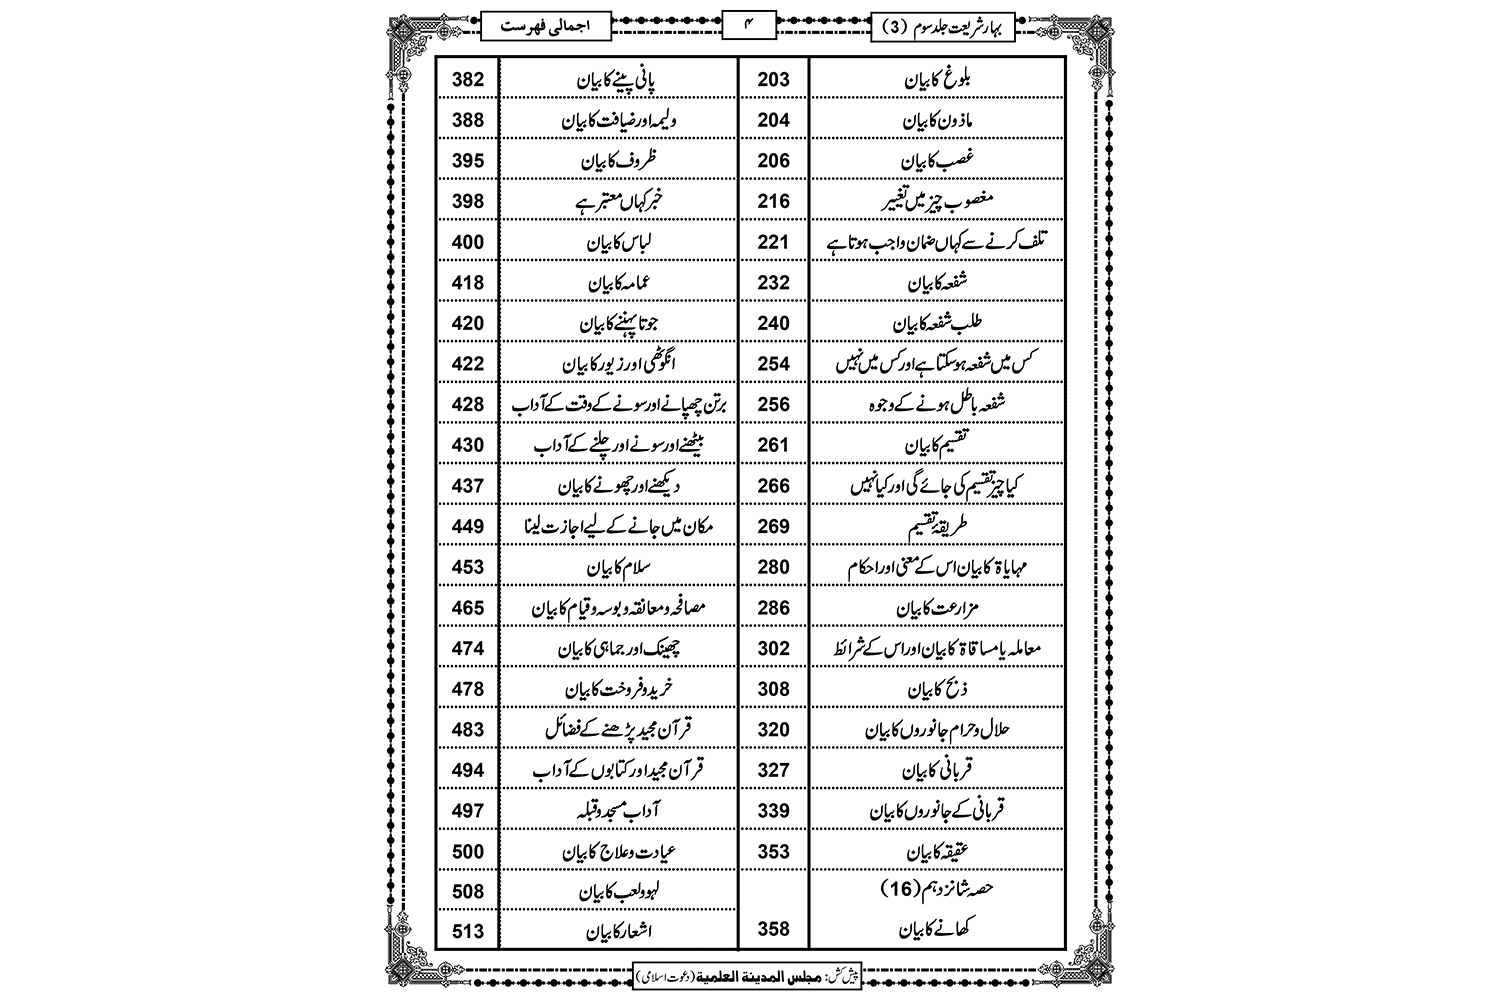 بہارشریعت جلد سوم (3)
۴
اجمالی فہرست
بلوغ کا بیان 203
ماذون کا بیان 204
غصب کا بیان 206
مغصوب چیز میں تغییر 216
تلف کرنے سے کہاں ضمان واجب ہوتا ہے 221
شفعہ کا بیان 232
طلب شفعہ کا بیان 240
کس میں شفعہ ہوسکتا ہے اور کس میں نہیں 254
شفعہ باطل ہونے کے وجوہ 256
تقسیم کا بیان 261
کیا چیز تقسیم کی جائے گی اور کیا نہیں 266
طریقۂ تقسیم 269
مہایاۃ کا بیان اس کے معنی اور احکام 280
مزارعت کا بیان 286
معاملہ یا مساقاۃ کا بیان اور اس کے شرائط 302
ذبح کا بیان 308
حلال و حرام جانوروں کا بیان 320
قربانی کا بیان 327
قربانی کے جانوروں کا بیان 339
عقیقہ کا بیان 353
حصہ شانزدہم (16)
کھانے کا بیان 358
پانی پینے کا بیان 382
ولیمہ اور ضیافت کا بیان 388
ظروف کا بیان 395
خبر کہاں معتبر ہے 398
لباس کا بیان 400
عمامہ کا بیان 418
جوتا پہننے کا بیان 420
انگوٹھی اور زیور کا بیان 422
برتن چھپانے اور سونے کے وقت کے آداب 428
بیٹھنے اور سونے اور چلنے کے آداب 430
دیکھنے اور چھونے کا بیان 437
مکان میں جانے کے لیے اجازت لینا 449
سلام کا بیان 453
مصافحہ و معانقہ و بوسہ و قیام کا بیان 465
چھینک اور جماہی کا بیان 474
خرید و فروخت کا بیان 478
قرآن مجید پڑھنے کے فضائل 483
قرآن مجید اور کتابوں کے آداب 494
آداب مسجد و قبلہ 497
عیادت و علاج کا بیان 500
لہو و لعب کا بیان 508
اشعار کا بیان 513
پیش کش: مجلس المدینة العلمیة (دعوت اسلامی)